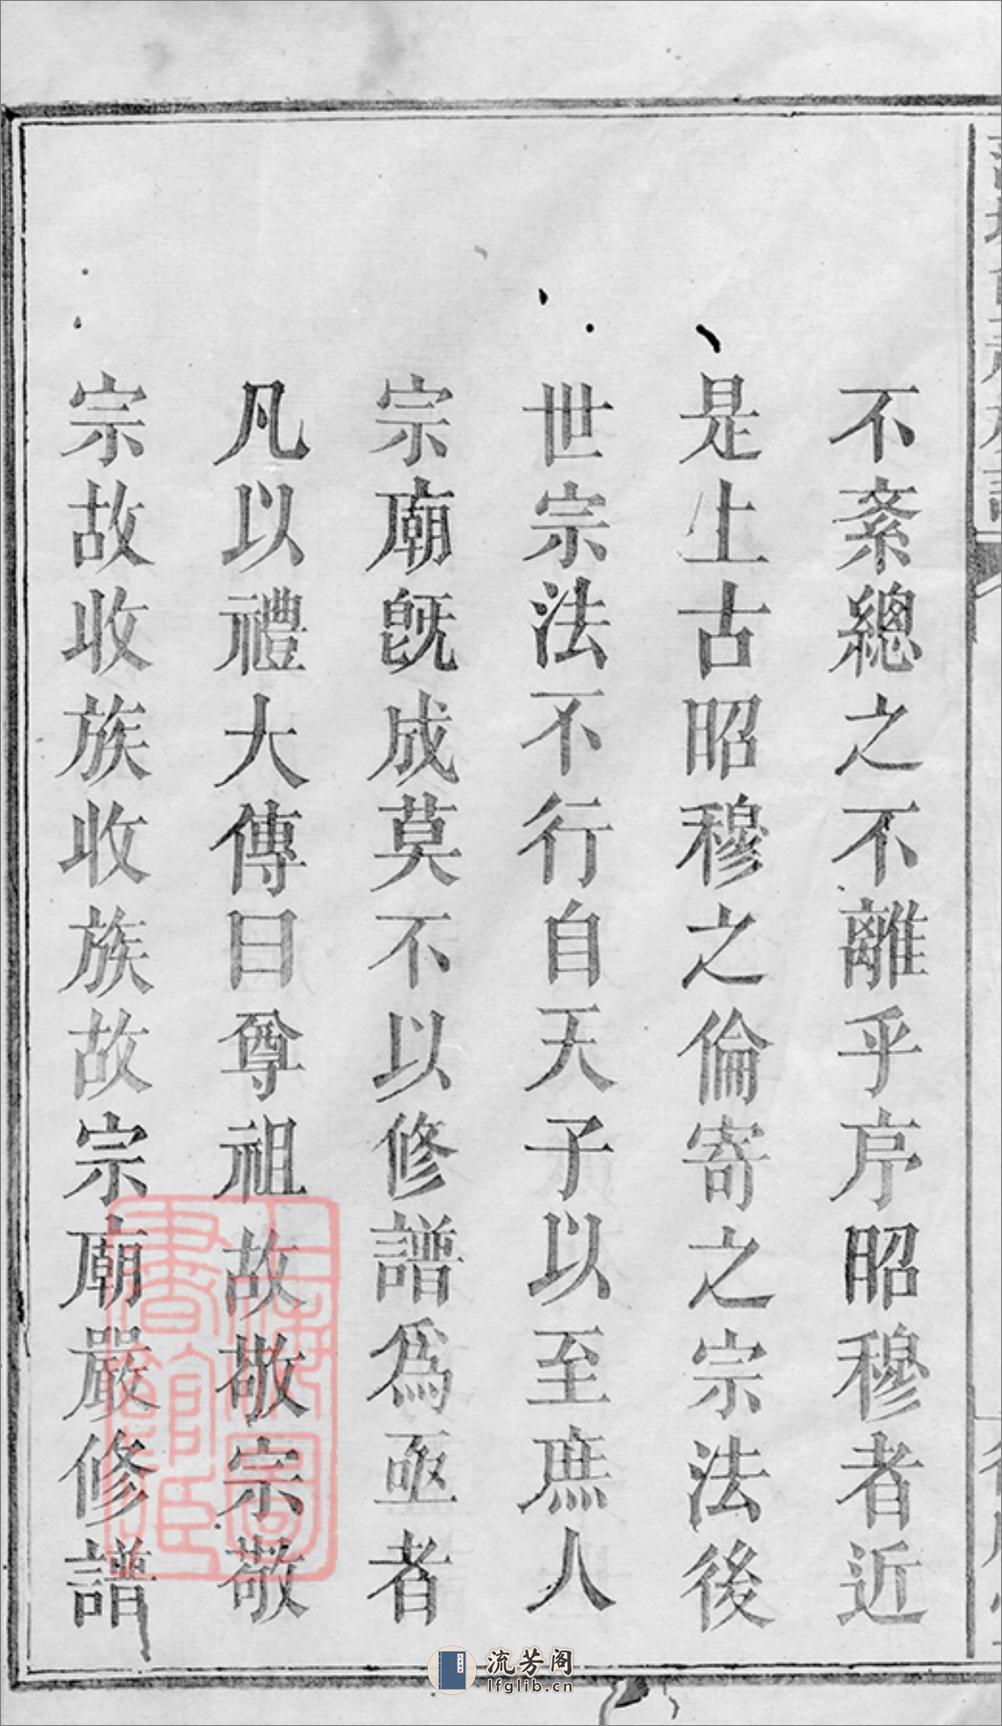 不紊總之不離乎序昭穆者近
是上古昭穆之倫寄之宗法後
世宗法不行自天子以至庶人
宗廟旣成莫不以修譜爲亟者
凡以禮大傳曰尊祖故敬宗敬
宗故收族收族故宗廟嚴修譜
上海圖書館藏
流芳阁
lfglib.cn